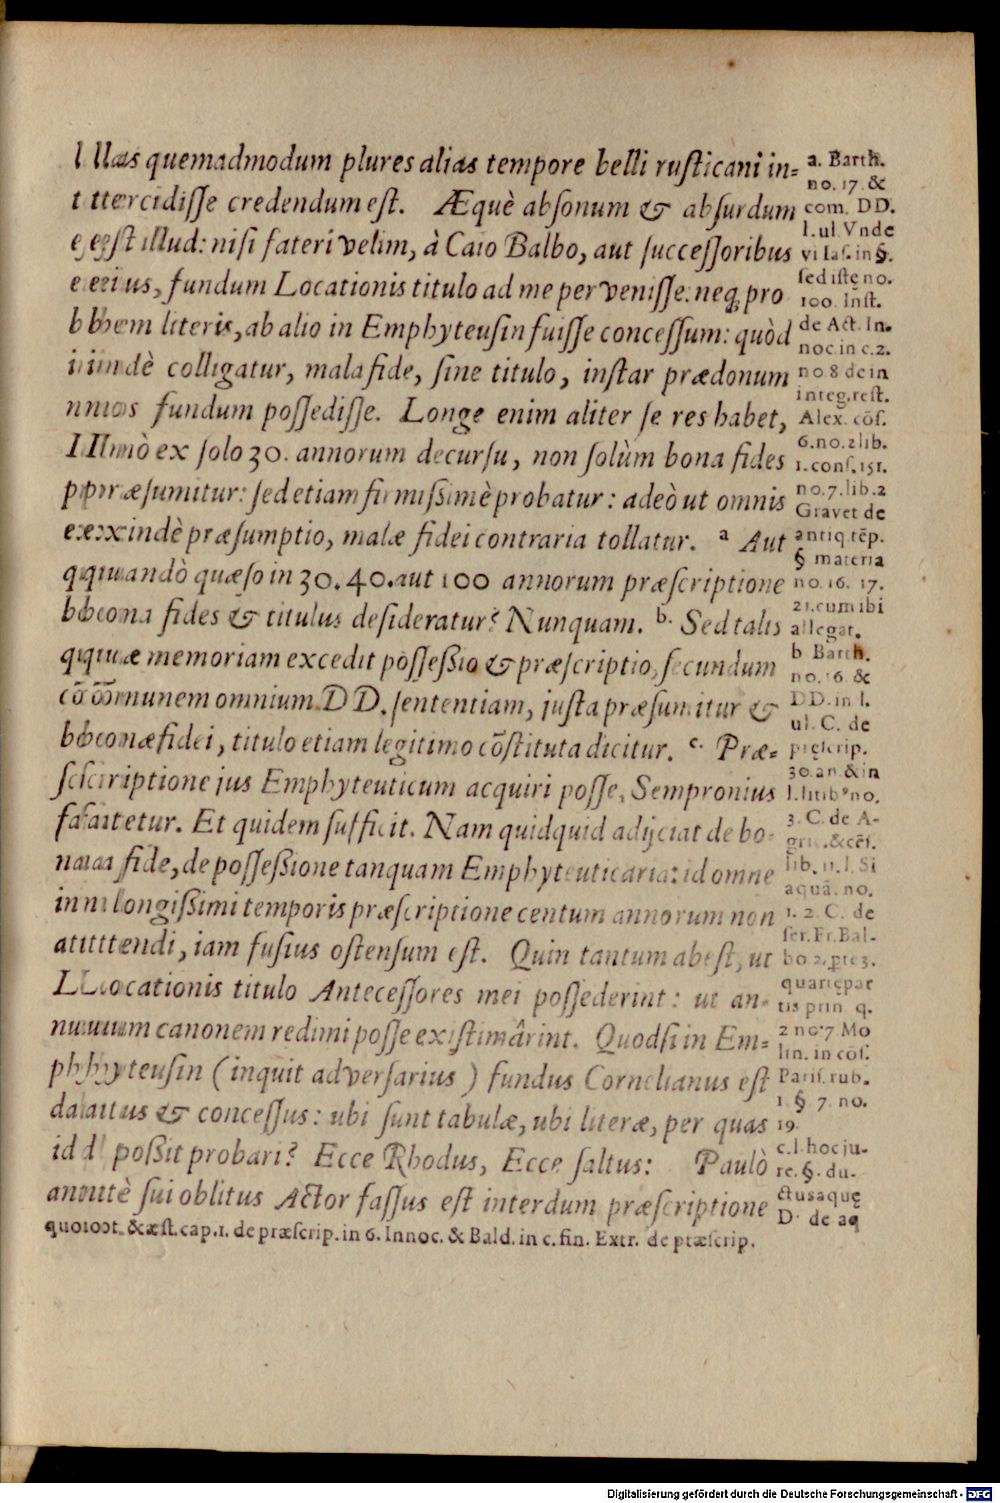 Illas quemadmodum plures alias tempore belli rusticani in-
tercidisse credendum est. Æquè absonum & absurdum
est illud: nisi fateri velim, à Caio Balbo, aut successoribus
eius, fundum Locationis titulo ad me pervenisse: neq; pro
bem literis, ab alio in Emphyteusin fuisse concessum: quòd
indè colligatur, mala fide, sine titulo, instar prædonum
nos fundum possedisse. Longe enim aliter se res habet,
Immò ex solo 30. annorum decursu, non solùm bona fides
præsumitur: sed etiam firmissimè probatur: adeò ut omnis
exindè præsumptio, malæ fidei contraria tollatur. a Aut
quandò quæso in 30. 40. aut 100 annorum præscriptione
bona fides & titulus desideratur? Nunquam. b. Sed talis
quæ memoriam excedit possessio & præscriptio, secundum
cōmunem omnium DD. sententiam, justa præsumitur &
bonæ fidei, titulo etiam legitimo cōstituta dicitur. c. Præ-
scriptione jus Emphyteuticum acquiri posse, Sempronius
fatetur. Et quidem sufficit. Nam quidquid adijciat de bo-
na fide, de possessione tanquam Emphyteuticaria: id omne
in longissimi temporis præscriptione centum annorum non
attendi, iam fusius ostensum est. Quin tantum abest, ut
Locationis titulo Antecessores mei possederint: ut an-
nuum canonem redimi posse existimârint. Quodsi in Em-
phyteusin (inquit adversarius) fundus Cornelianus est
datus & concessus: ubi sunt tabulæ, ubi literæ, per quas
id possit probari? Ecce Rhodus, Ecce saltus: Paulò
antè sui oblitus Actor fassus est interdum præscriptione
a. Barth.
no. 17. &
com. DD.
l. ul. Vnde
vi Ias. in §.
sed istę no.
100. Inst.
de Act. In.
noc. in c. 2.
no 8 de in
integ. rest.
Alex. cōs.
6. no. 2 lib.
1. cons. 151.
no. 7. lib. 2
Gravet de
antiq. tēp.
§ materia
no. 16. 17.
21. cum ibi
allegat.
b Barth.
no. 16. &
DD. in l.
ul. C. de
pręscrip.
30. an. & in
l. litib⁹ no.
3. C. de A-
gric. & cēs.
lib. 11. l. Si
aquā. no.
1. 2. C. de
ser. Fr. Bal-
bo 2. pte 3.
quartę par
tis prin q.
2 no. 7 Mo
lin. in cōs.
Paris. rub.
1. § 7. no.
19.
c. l. hoc ju-
re. §. du-
ctus aquę
D. de aq
quot. & æst. cap. 1. de præscrip. in 6. Innoc. & Bald. in c. fin. Extr. de præscrip.
Digitalisierung gefördert durch die Deutsche Forschungsgemeinschaft - DFG